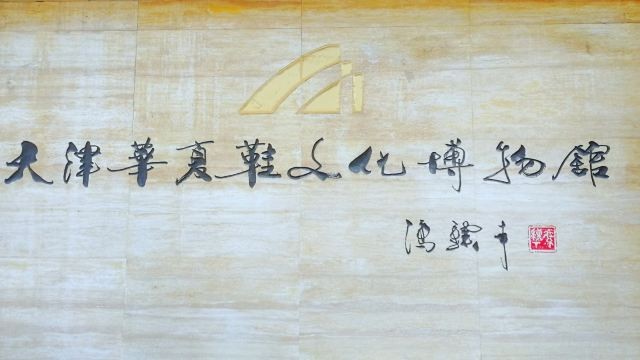 天津華夏鞋文化博物館
馮驥才